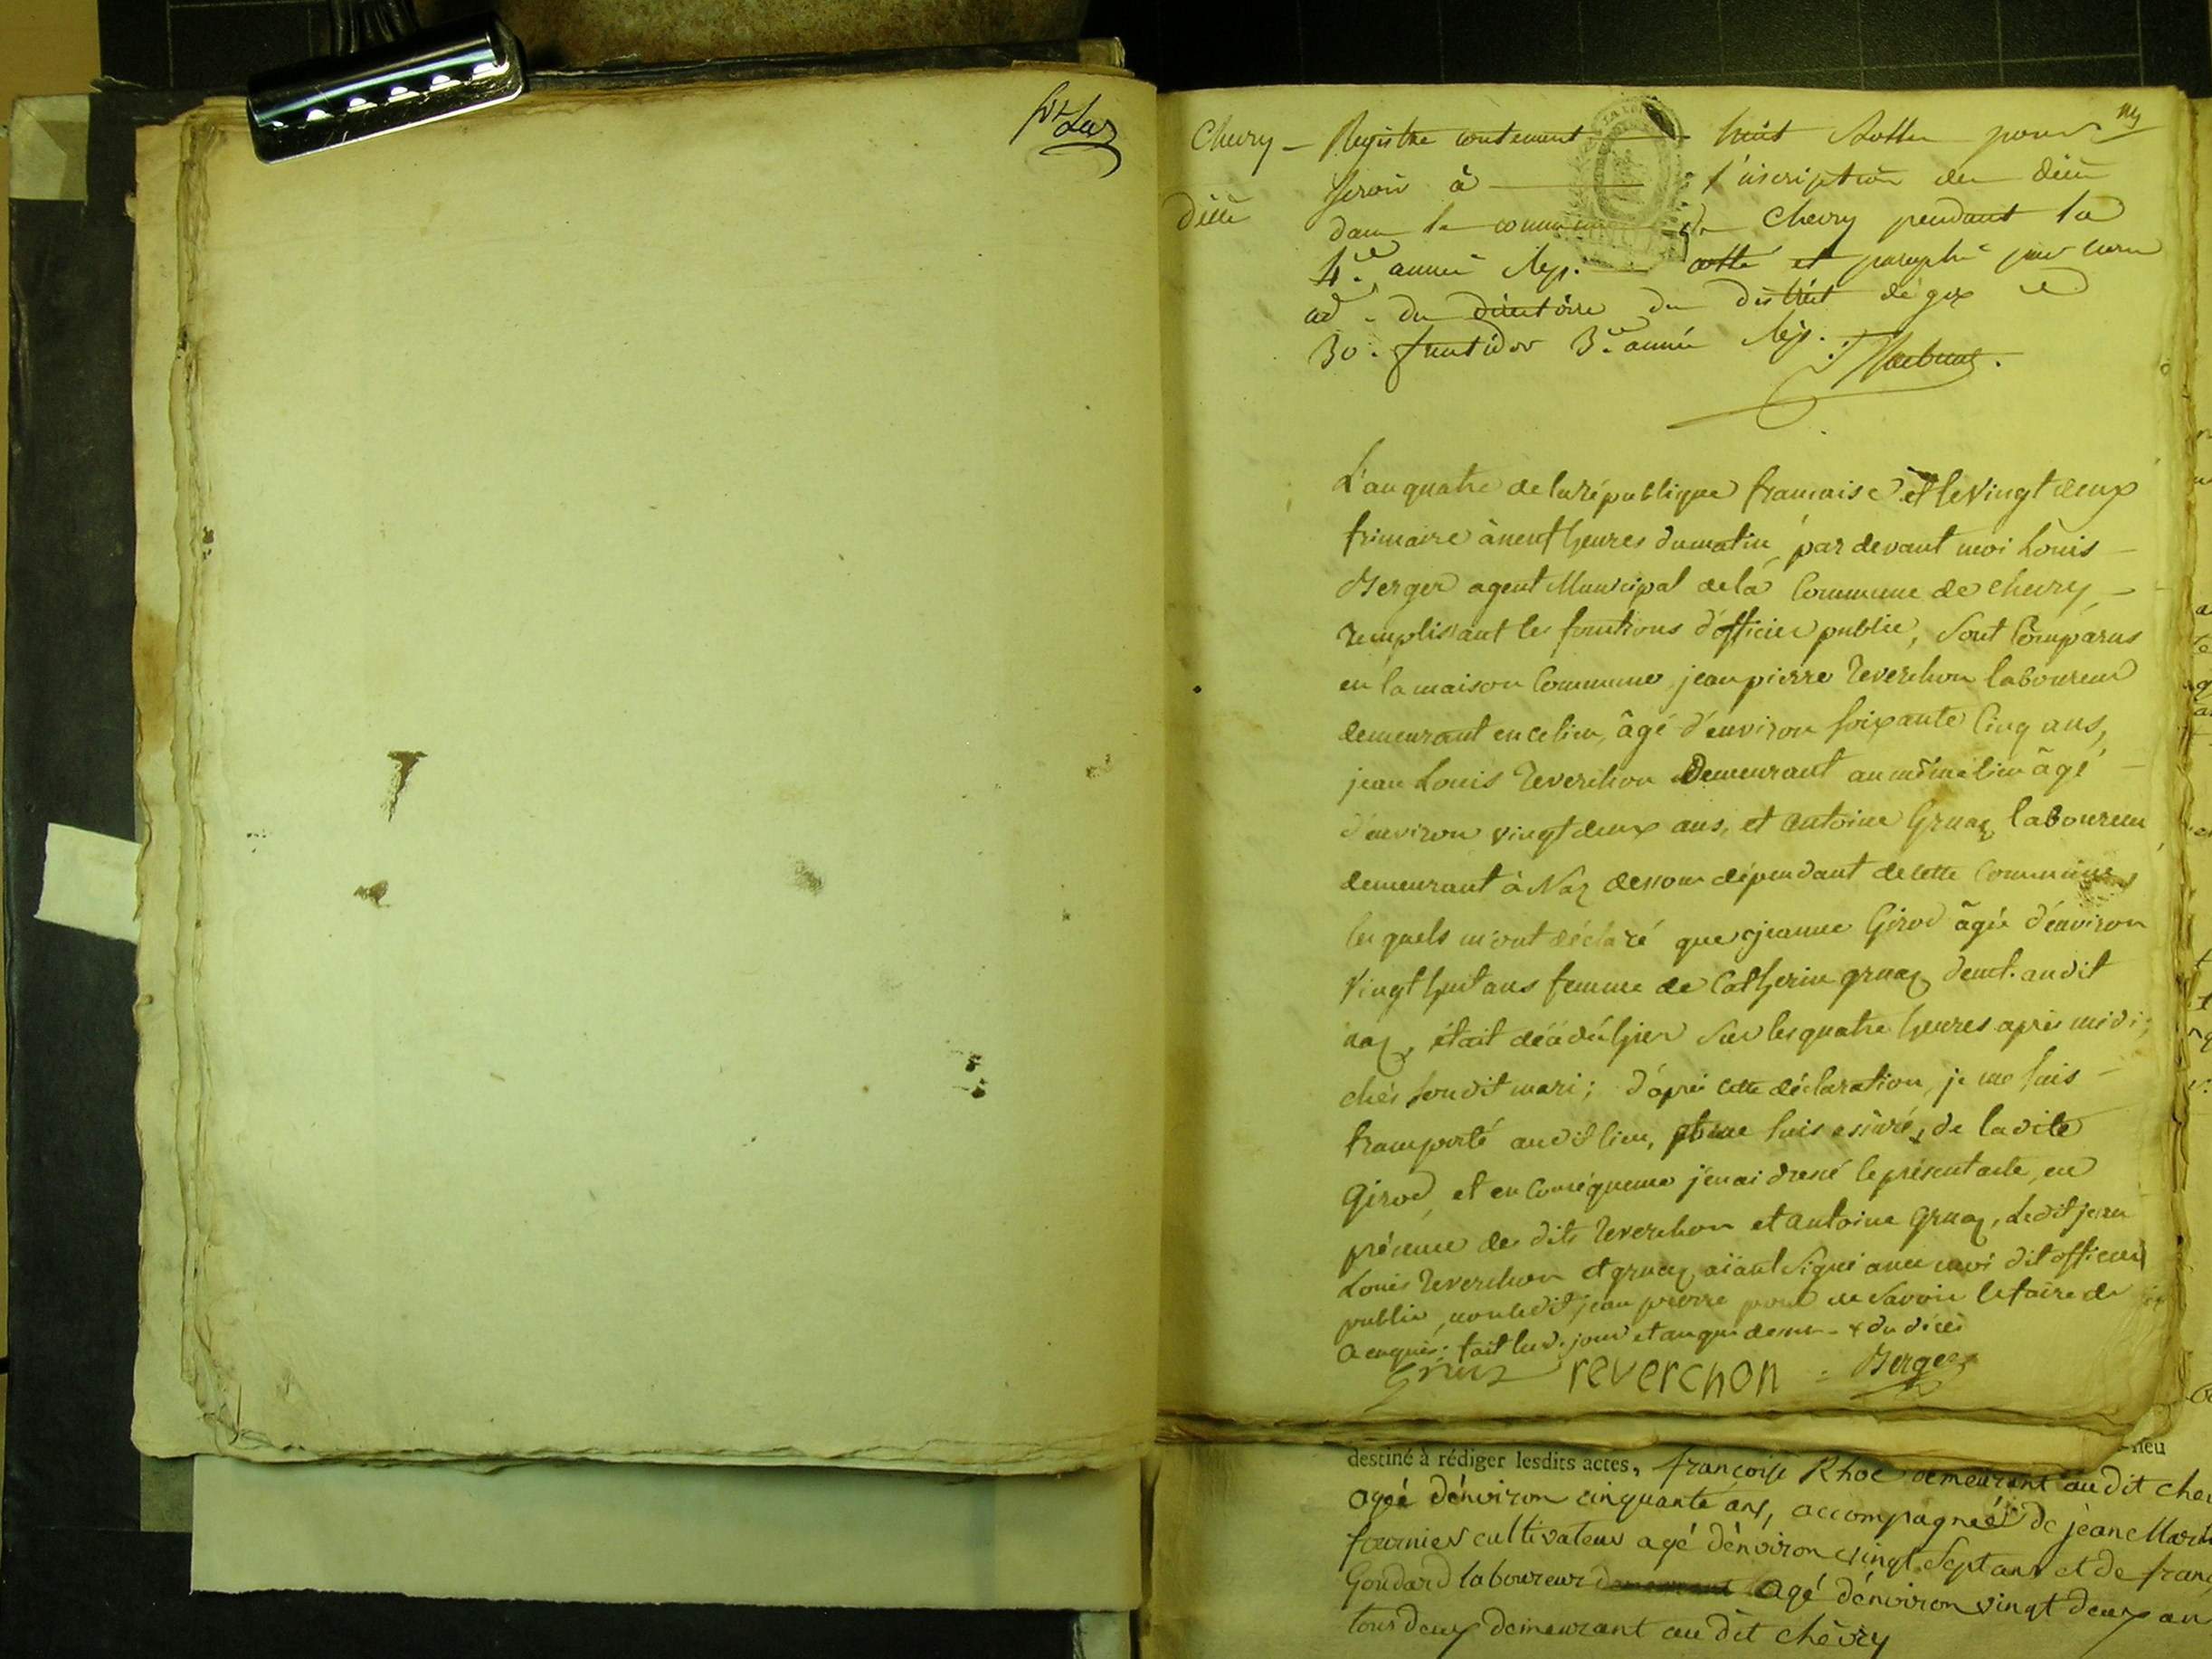 Chevry - Registre contenant huit cottes pour
servir à l'inscription des décès
Décès
dans la commune de Chevry pendant la
4.e année rép. cotté et paraphé par nous
ad. du directoire du district de gex le
30. fructidor 3.e année rép.
L'an quatre de la république francaise et le vingt deux
frimaire à neuf heures du matin, par devant moi Louis
Berger agent Municipal de la Commune de chevry
remplissant les fonctions d'officier public, sont Comparus
en la maison Commune, jean pierre reverchon laboureur
demeurant en ce lieu, âgé d'environ soixante Cinq ans,
jean Louis reverchon Demeurant au même lieu âgé
d'environ vingt deux ans, et antoine Gruaz laboureur
demeurant à Naz dessous dépendant de cette Commune,
lesquels m'ont déclaré que jeanne Girod âgée d'environ
vingt huit ans femme de Catherin gruaz demt. audit
naz, était décédée hier sur les quatre heures après midi,
chés son dit mari; d'après cette déclaration, je me suis
transporté audit lieu, et me suis assuré x de la dite
Girod, et en Conséquence j'en ai dressé le présent acte, en
présence des dits reverchon et antoine gruaz, Ledit jean
Louis reverchon et gruaz aiant signé avec moi dit officier
public, non ledit jean pierre pour ne savoir le faire de
ce enquis. fait les d. jour et an que dessus - x du décès
Gruaz reverchon Berger
destiné à rédiger lesdits actes, françoise Rhoe demeurant au dit che
agée d'énviron cinquante ans, accompagnée de jean Mar
fournier cultivateur agé d'énviron vingt Sept ans et de fran
Goudard laboureur agé d'énviron vingt deux an
tous deux demeurant au dit chèvry